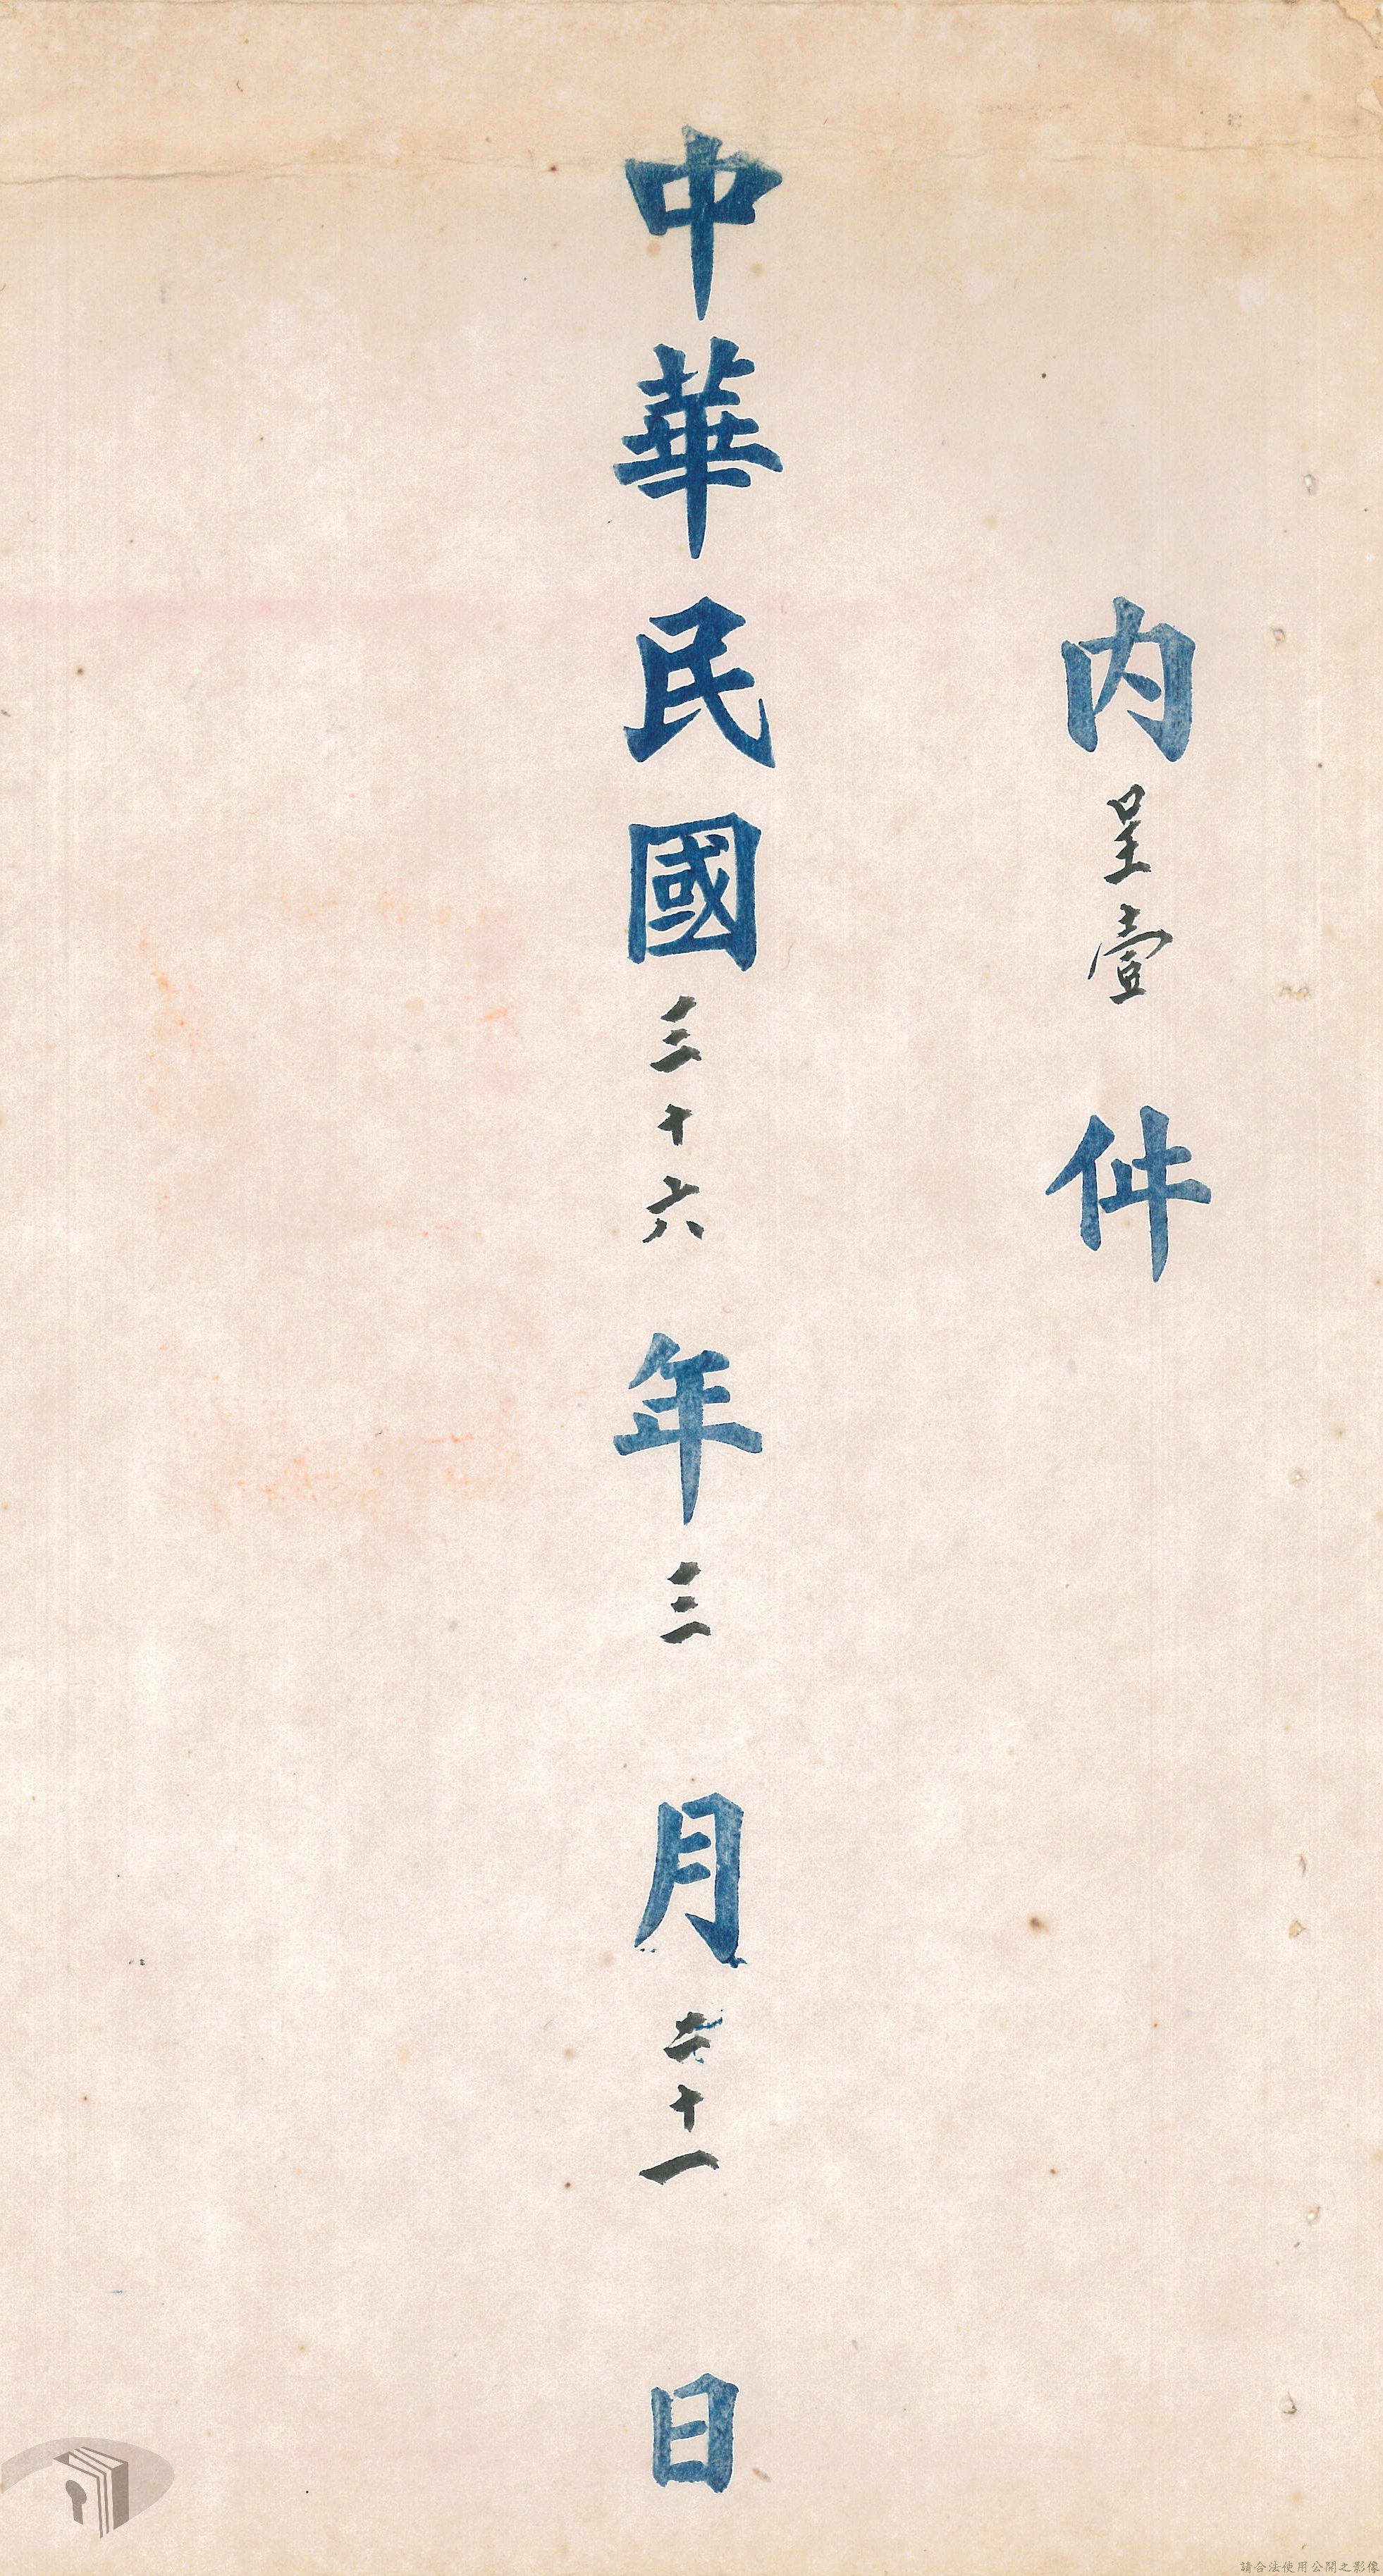 内呈壹件
中華民國三十六年三月二十一日
請合法使用公開之影像